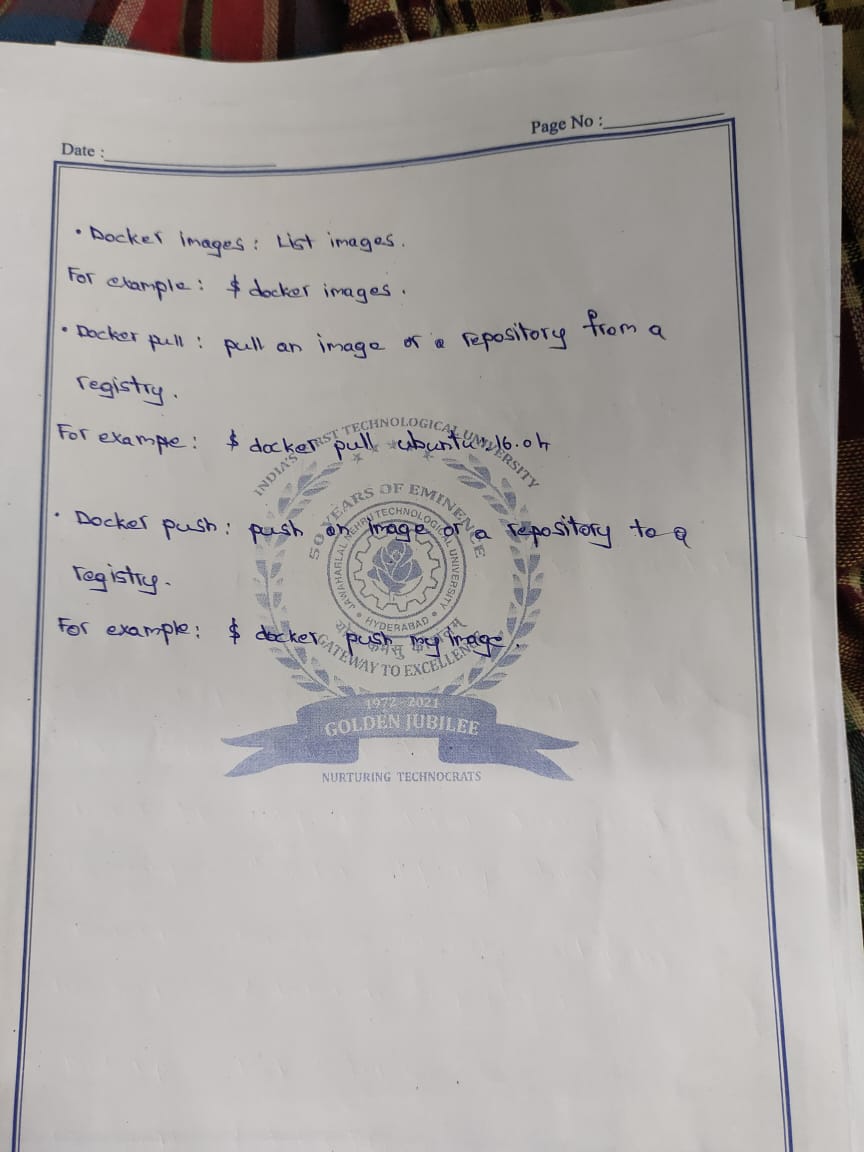 Page No :
Date :
• Docker images : List images.
For example : $ docker images.
• Docker pull : pull an image or a repository from a
registry.
For exampe : $ docker pull ubuntu:16.04
• Docker push : push an image or a repository to a
registry.
For example : $ docker push myimage.
INDIA'S FIRST TECHNOLOGICAL UNIVERSITY
50 YEARS OF EMINENCE
JAWAHARLAL NEHRU TECHNOLOGICAL UNIVERSITY
• HYDERABAD •
GATEWAY TO EXCELLENCE
1972-2021
GOLDEN JUBILEE
NURTURING TECHNOCRATS